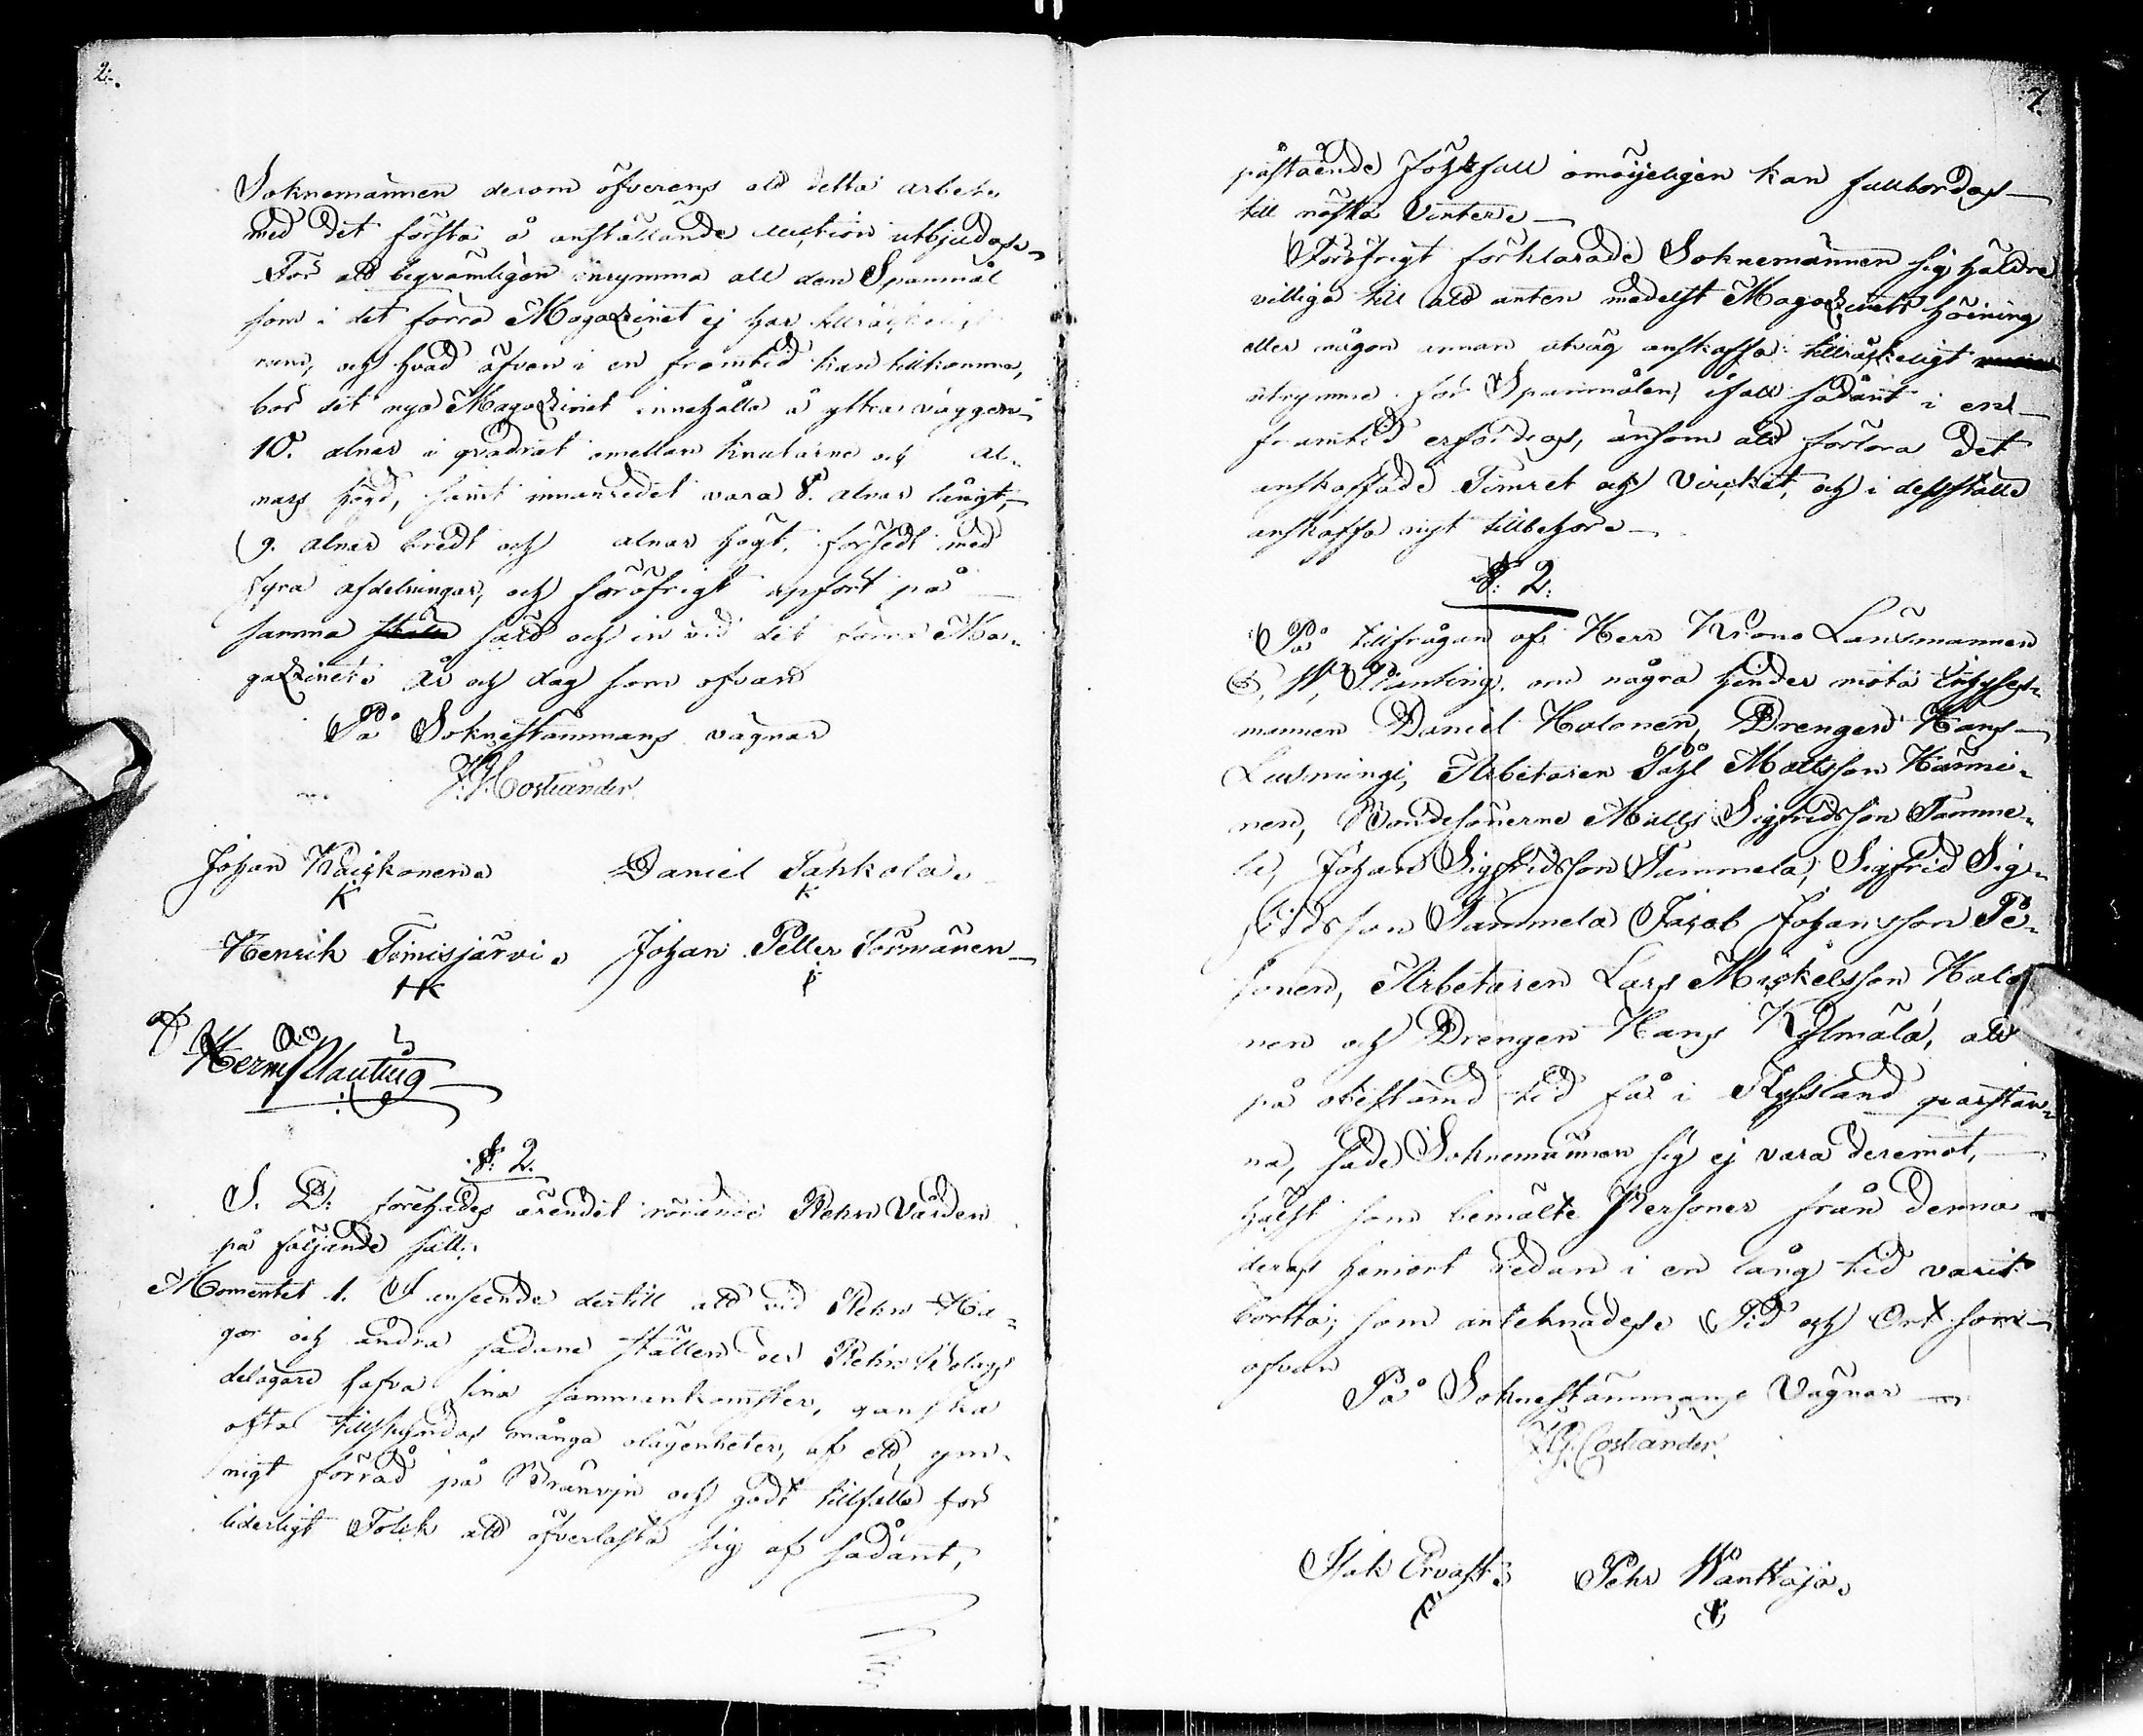 2.
Soknemännen derom öfverens att detta arbete
med det första å anställande auction utbjudas.
För att beqvämligen inrymma all den Spanmål
som i det förra Magazinet ej har tillräckligt
rum, och hvad äfven i en framtid kan tillkomma,
bör det nya Magazinet innehålla å yttra väggen
10. alnar i qvadrat emellan knutarne och al-
nars högd, samt innanredet vara 8. alnar långt,
9. alnar bredt och alnar högt, försedt med
fyra afdelningar, och föröfrigt upfört på
samma sätt och in vid det förra Ma-
gazinet. År och dag som ofvan
På Soknestämmans vägnar
J. G. Costiander
Johan Räiskonen. Daniel Tahkola.
Henrik Tomisjärvi. Johan Petter Törmänen
HK
Herm Planting
§: 2.
S. D. förehades ärendet rörande Rehn Vården
på följande sätt.
Momentet 1. I anseende dertill att vid Rehn Ha-
gar och andra sådane ställen der Rehn Bolags
delägare hafva sina sammankomster, ganska
ofta tillskyndas många olägenheter, af ett ym-
nigt förråd på Bränvin och godt tillfälle för
liderligt Folck att öfverlasta sig af sådant,
7.
påstående fall omöjeligen kan fullbordas
till nästa Vinter.
Föröfrigt förklarade Soknemännen sig häldre
villige till att anten medelst Magazinets höining
eller någon annan utväg anskaffa tillräckeligt
utrymme för Spanmålen, ifall sådant i en
framtid erfordras, änsom att förlora det
anskaffade Timret och Virket, och i desställe
anskaffa nyt tillbehör.
§: 2.
På tillfrågan af Herr Krono Länsmannen
H. Planting, om några hinder möta
mannen Daniel Halonen, Drengen Hans
Lusmingi, Arbetaren Påhl Mattsson Kärmi-
nen, Bondesönerne Matts Sigfridsson Tamme-
la, Johan Sigfridsson Tammela, Sigfrid Sig-
fridsson Tammela Jacob Johansson Pe-
sonen, Arbetaren Lars Mickelsson Halo-
nen och Drengen Hans Kylmälä, att
på obestämd tid få i Ryssland qvarstan-
na, sade Soknemännen sig ej vara deremot,
hälst som bemälte Personer från denna
deras hemort redan i en lång tid varit
bortta; som anteknades. Tid och Ort som
ofvan
På Soknestämmans Vägnar
J. G. Costiander
Isak Ervast. Pehr Wänttäjä.